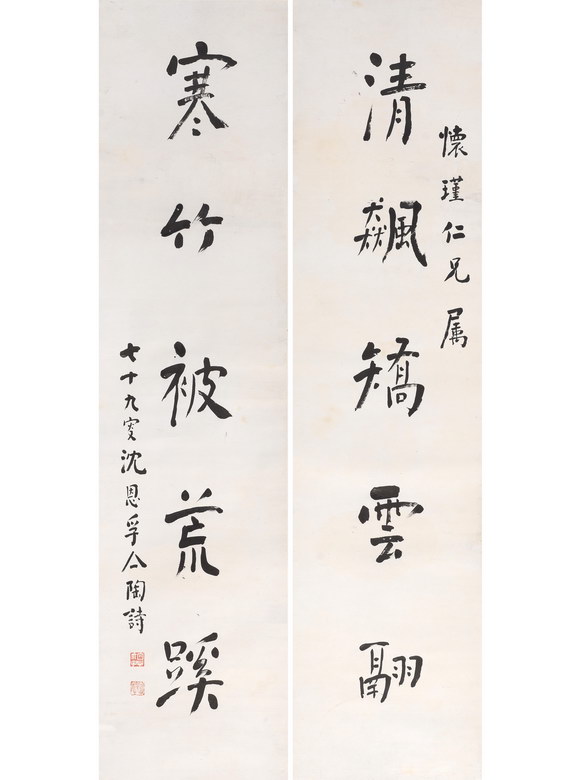 懷瑾仁兄属
清飆矯雲翮
寒竹被荒蹊
七十九叟沈恩孚亼陶詩